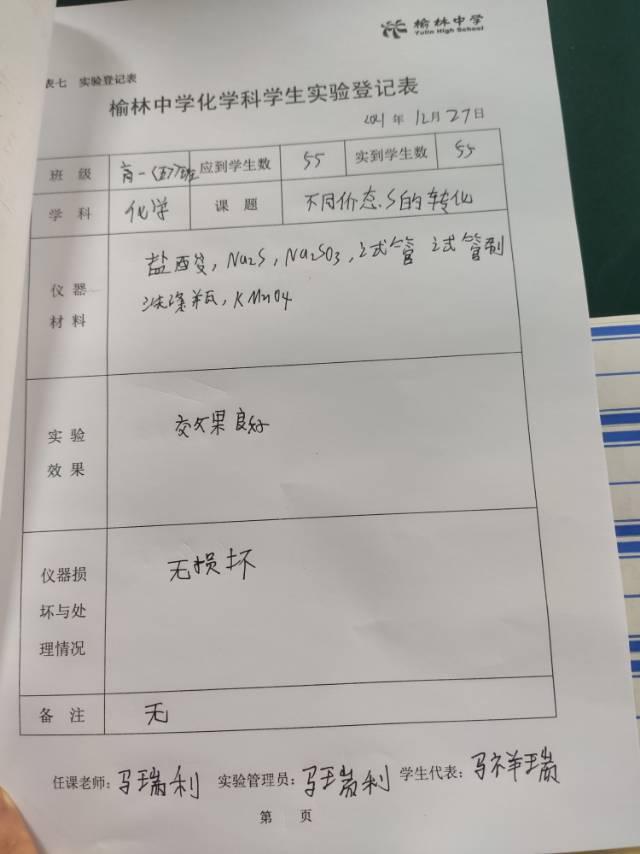 榆林中学
Yulin High School
表七 实验登记表
榆林中学化学科学生实验登记表
2021 年 12 月 27 日
班 级 高一(5)班 应到学生数 55 实到学生数 55
学 科 化学 课 题 不同价态S的转化
仪 器
材 料
盐酸, Na2S, Na2SO3, 试管 试管刷
洗涤瓶, KMnO4
实 验
效 果
效果良好
仪器损
坏与处
理情况
无损坏
备 注 无
任课老师: 马瑞利 实验管理员: 马瑞利 学生代表: 马祥瑞
第 页